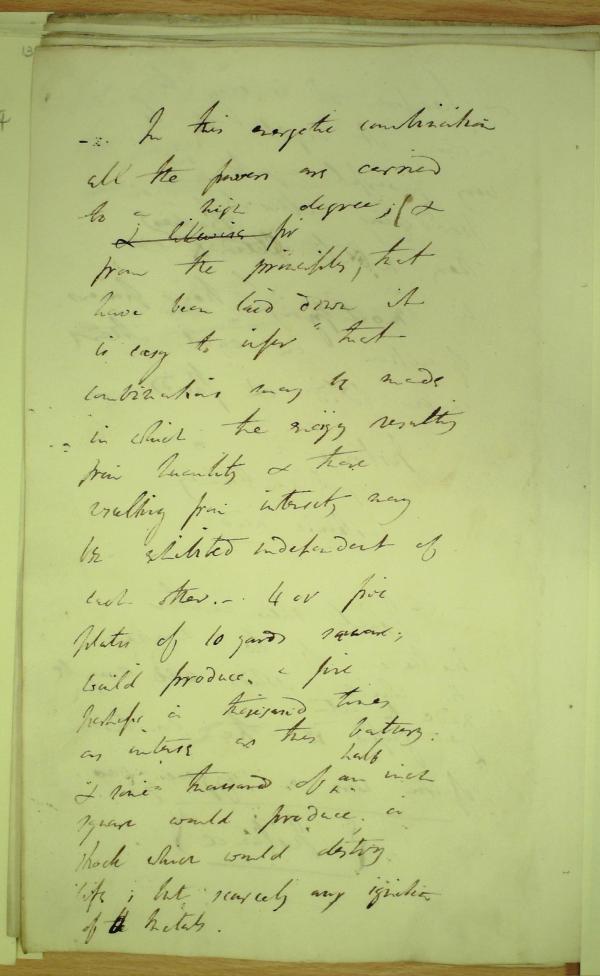 -.. In this energetic combination
all the powers are carried
to a high degree; &
& likewise fr
from the principles, that
have been laid down it
is easy to infer that
combinations may be made
in which the energy resulting
from quantity & those
resulting from intensity may
be exhibited independent of
each other. - 4 or five
plates of 10 yards square;
would produce a fire
perhaps a thousand times
as intense as this battery.
half
& some thousand of an inch
square would produce a
shock which would destroy
life; but scarcely any ignition
of metals.